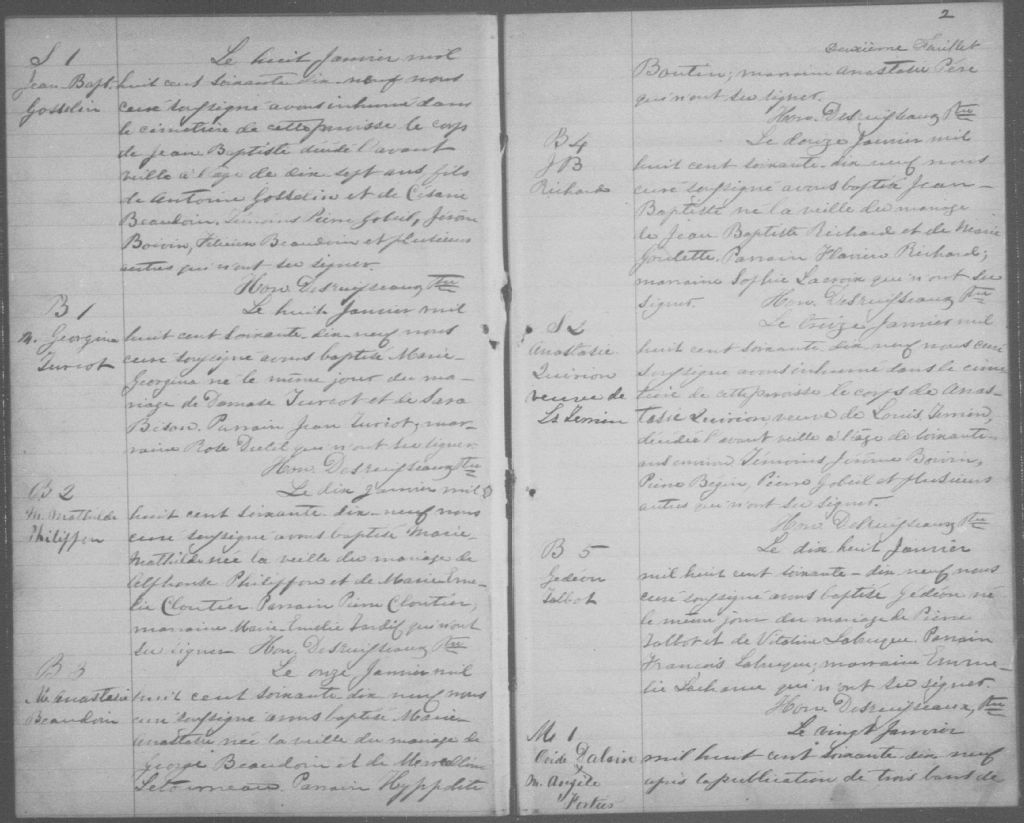 S 1
Jean-Bapt.
Gosselin
Le huit Janvier mil
huit cent soixante dix-neuf nous
curé soussigné avons inhumé dans
le cimetière de cette paroisse le corps
de Jean Baptiste décédé l'avant
veille à l'age de dix-sept ans, fils
de Antoine Gosselin et de Césarie
Beaudoin. Témoins Pierre Gobeil, Jérôme
Boivin, Beaudoin et plusieurs
autres qui n'ont su signer.
Hon. Desruisseaux Ptre
B 1
M. Georgina
Turcot
Le huit Janvier mil
huit cent soixante-dix-neuf nous
curé soussigné avons baptisé Marie-
Georgina né le même jour du ma-
riage de Damase Turcot et de Sara
Bison. Parrain Jean Turcot; mar-
raine Rose qui n'ont su signer
Hon. Desruisseaux Ptre
B 2
M. Mathilde
Philippon
Le dix Janvier mil
huit cent soixante-dix-neuf nous
curé soussigné avons baptisé Marie-
Mathilde née la veille du mariage de
Alphonse Philippon et de Marie Eme-
lie Cloutier Parrain Pierre Cloutier,
marraine Marie Emelie Tardif qui n'ont
su signer Hon. Desruisseaux Ptre
B 3
M. Anastasie
Beaudoin
Le onze Janvier mil
huit cent soixante dix neuf nous
curé soussigné avons baptisé Marie
Anastasie née la veille du mariage de
George Beaudoin et de
Letourneau Parrain Hyppolite
2
deuxième Feuillet
Boutin; marraine Anastasie Péré
qui n'ont su signer.
Hon. Desruisseaux Ptre
B 4
J B
Richard
Le douze Janvier mil
huit cent soixante-dix neuf nous
curé soussigné avons baptisé Jean-
Baptiste né la veille du mariage
de Jean Baptiste Richard et de Marie
Goulette. Parrain Richard;
marraine Sophie Lacroix qui n'ont su
signer. Hon. Desruisseaux Ptre
S 2
Anastasie
Quirion
veuve de
Ls Serrien
Le treize Janvier mil
huit cent soixante-dix neuf nous curé
soussigné avons inhumé dans le cime-
tière de cette paroisse le corps de Anas-
tasie Quirion, veuve de Louis
décédée l'avant veille à l'âge de soixante-
ans environ Témoins Jérôme Boivin,
Pierre Begin, Pierre Gobeil et plusieurs
autres qui n'ont su signer.
Hon. Desruisseaux Ptre
B 5
Gedéon
Talbot
Le dix huit Janvier
mil huit cent soixante-dix neuf nous
curé soussigné avons baptisé Gedéon né
le même jour du mariage de Pierre
Talbot et de Vitaline Labreque. Parrain
Francois Labreque; marraine Emme-
lie Lachance qui n'ont su signer.
Hon. Desruisseaux, Ptre
M 1
Ovide Dalain
&
M. Angèle
Fortier
Le vingt Janvier
mil huit cent soixante-dix neuf
après la publication de trois bans de